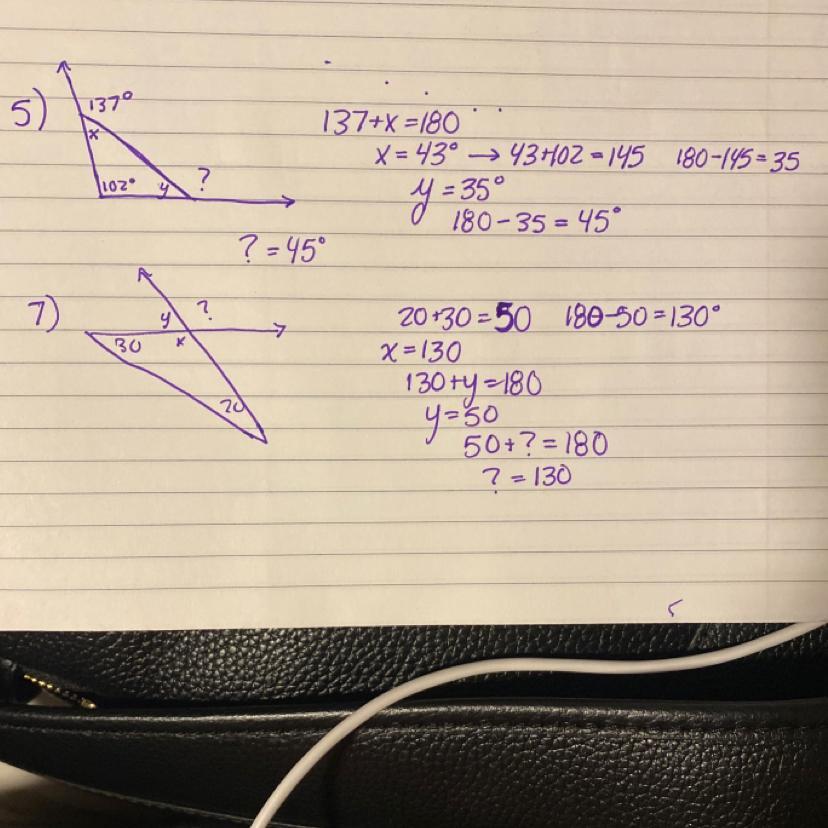 5)
137°
x
102° y ?
137+x=180
x=43° → 43+102=145 180-145=35
y=35°
180-35=45°
?=45°
7)
y ?
30 x
20
20+30=50 180-50=130°
x=130
130+y=180
y=50
50+?=180
?=130